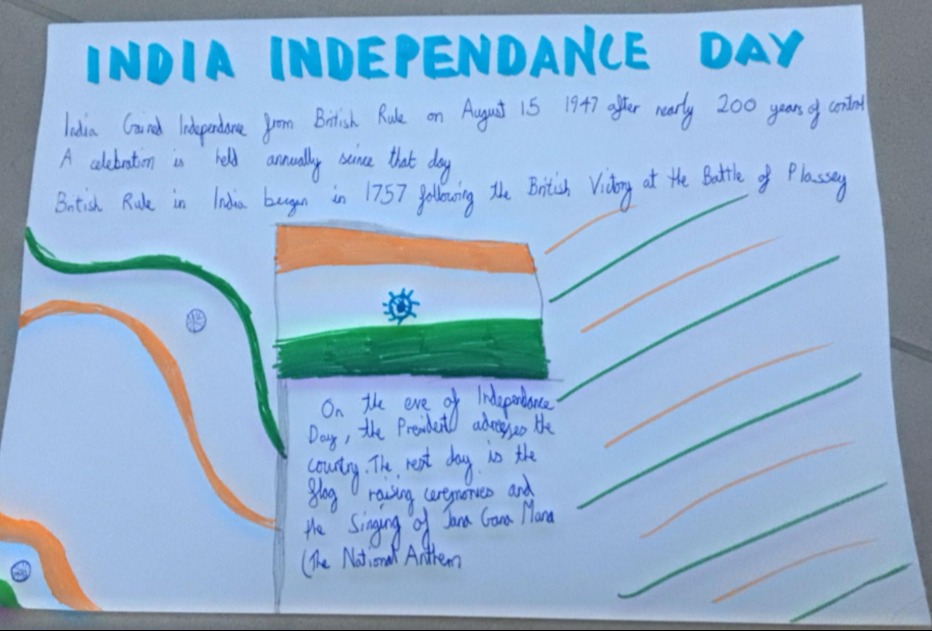 INDIA INDEPENDANCE DAY
India Gained Independance from British Rule on August 15 1947 after nearly 200 years of control
A celebration is held annually seince that day
British Rule in India bergan in 1757 following the British Victory at the Battle of Plassey
On the eve of Independance
Day, the President adresses the
country. The next day is the
flag raising ceregmonies and
the Singing of Jana Gana Mana
(The National Anthem